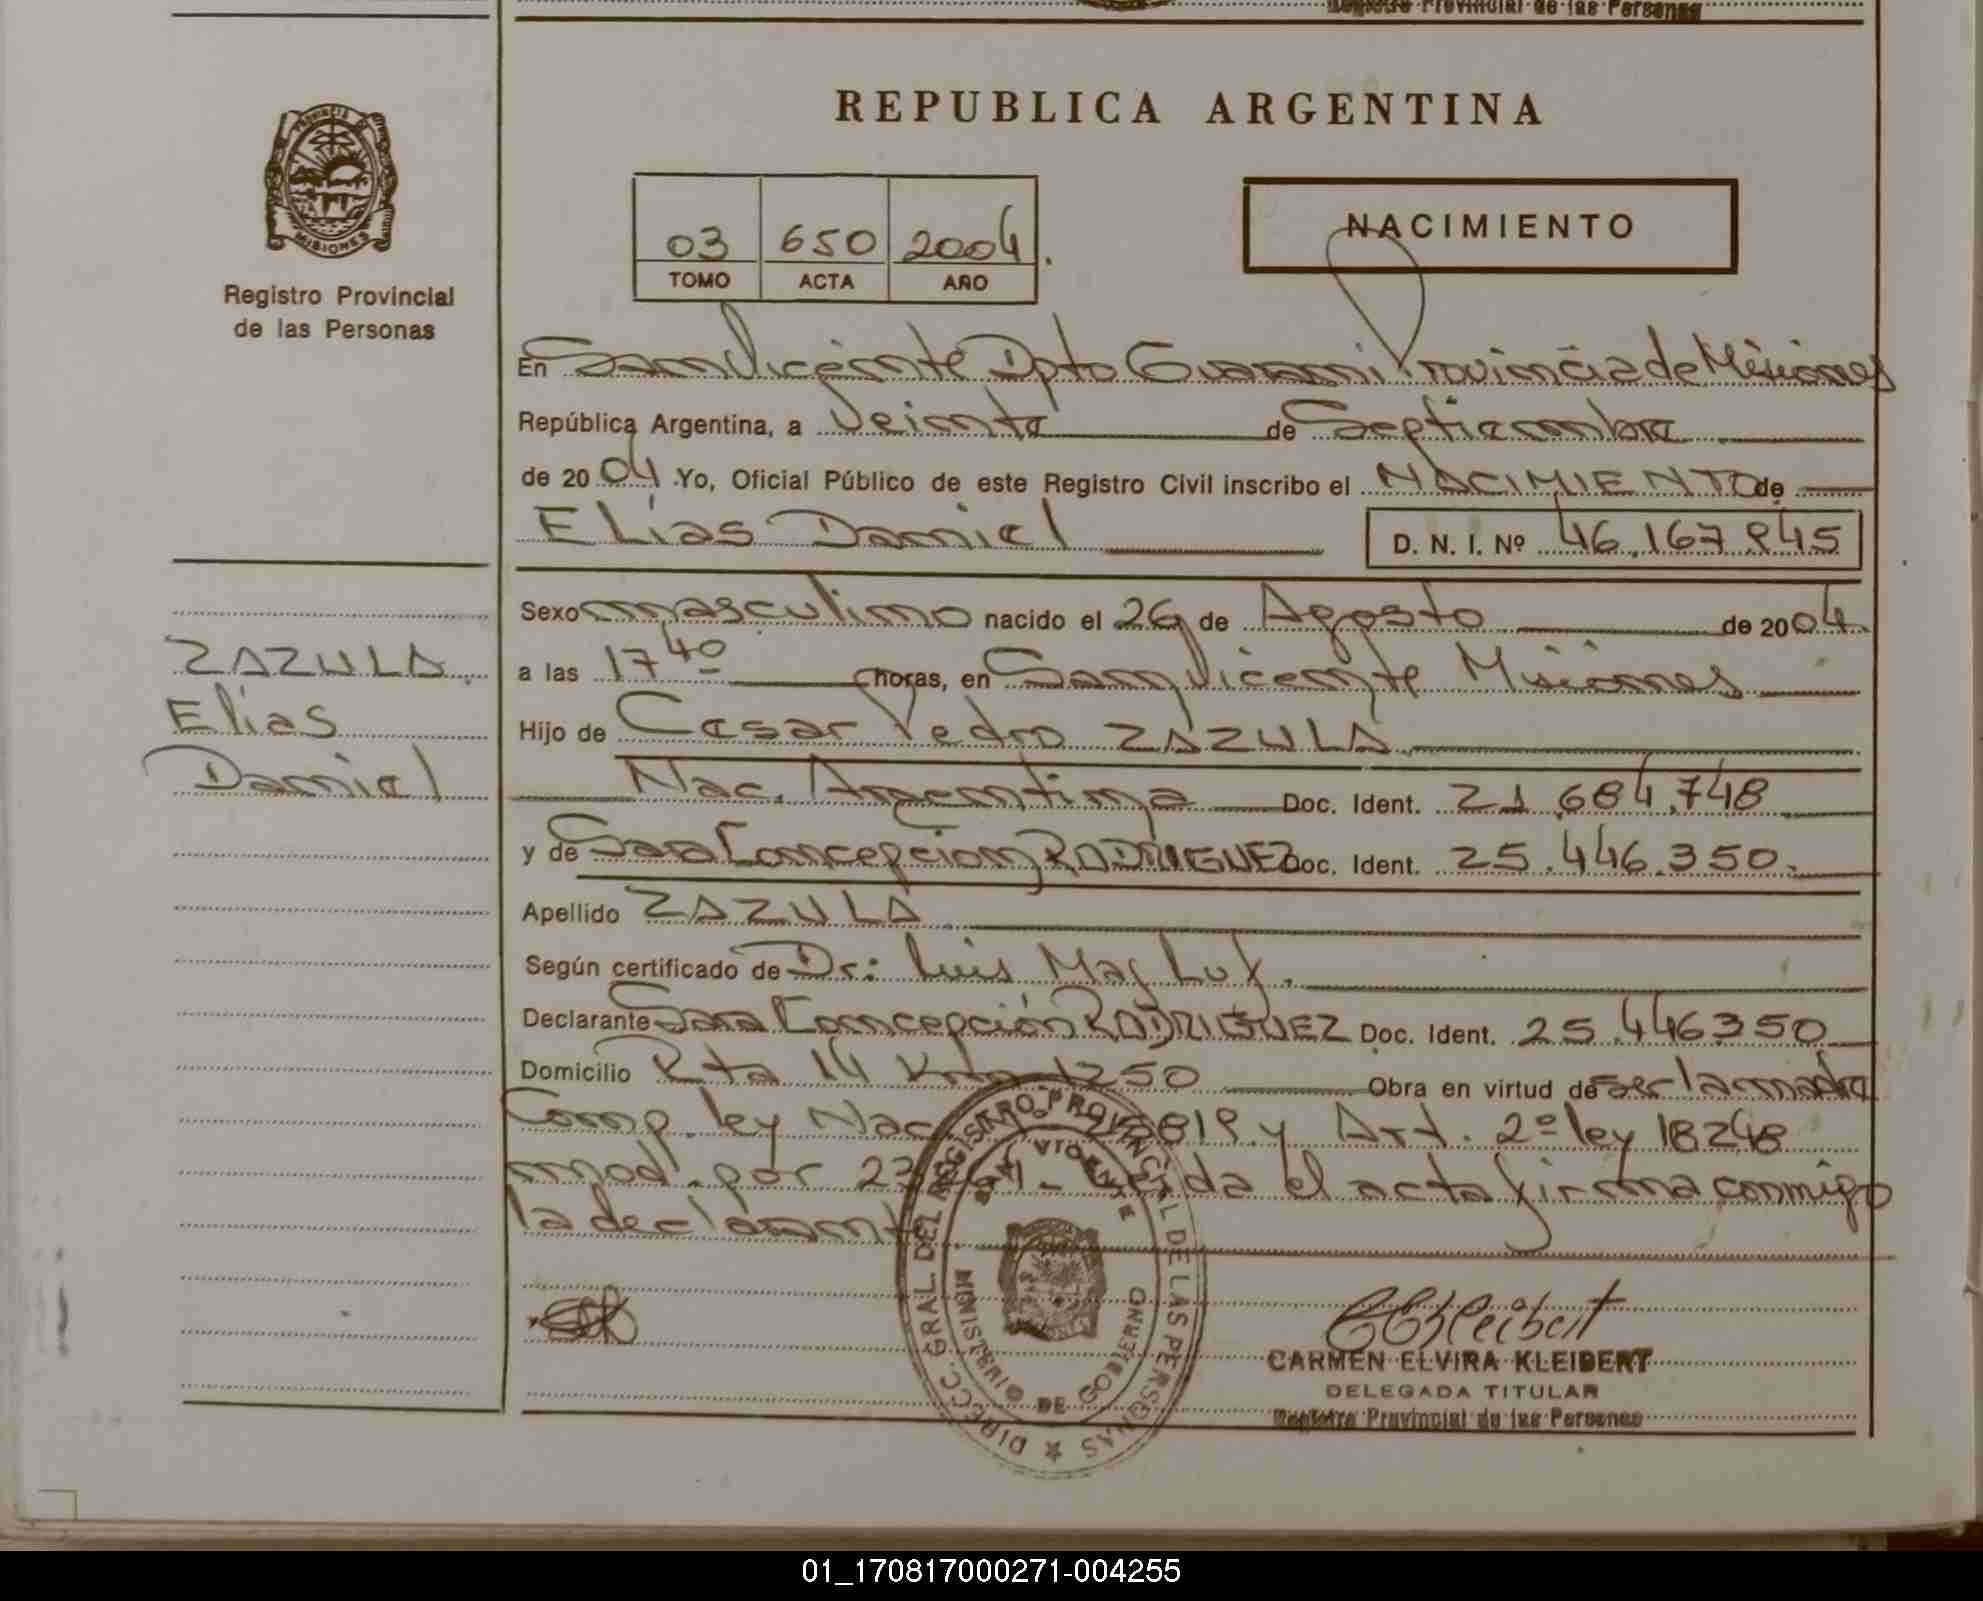 Registro Provincial de las Personas
REPUBLICA ARGENTINA
PROVINCIA DE
MISIONES
Registro Provincial
de las Personas
03 650 2004
TOMO ACTA AÑO
NACIMIENTO
En San Vicente Dpto Guarani Provincia de Misiones
República Argentina, a Veinte de Septiembre
de 2004 Yo, Oficial Público de este Registro Civil inscribo el NACIMIENTO de
Elias Daniel D. N. I. Nº 46.167.845
Sexo masculino nacido el 26 de Agosto de 2004
a las 17 40 horas, en San Vicente Misiones
Hijo de Cesar Pedro ZAZULA
Nac. Argentina Doc. Ident. 21.684.748
y de Sara Concepcion RODRIGUEZ Doc. Ident. 25.446.350.
Apellido ZAZULA
Según certificado de Dr: Luis
Declarante Sara Concepción RODRIGUEZ Doc. Ident. 25.446350
Domicilio Rta 14 Km 1250 Obra en virtud de ser la madre
Comp. ley Nac y Art. 2º ley 18248
mod. por el acta firma conmigo
la declarante.
ZAZULA
Elias
Daniel
DIRECC. GRAL. DEL REGISTRO PROVINCIAL DE LAS PERSONAS
SAN VICENTE
MINISTERIO DE GOBIERNO
CEKleibert
CARMEN ELVIRA KLEIBERT
DELEGADA TITULAR
Registro Provincial de las Personas
01_170817000271-004255